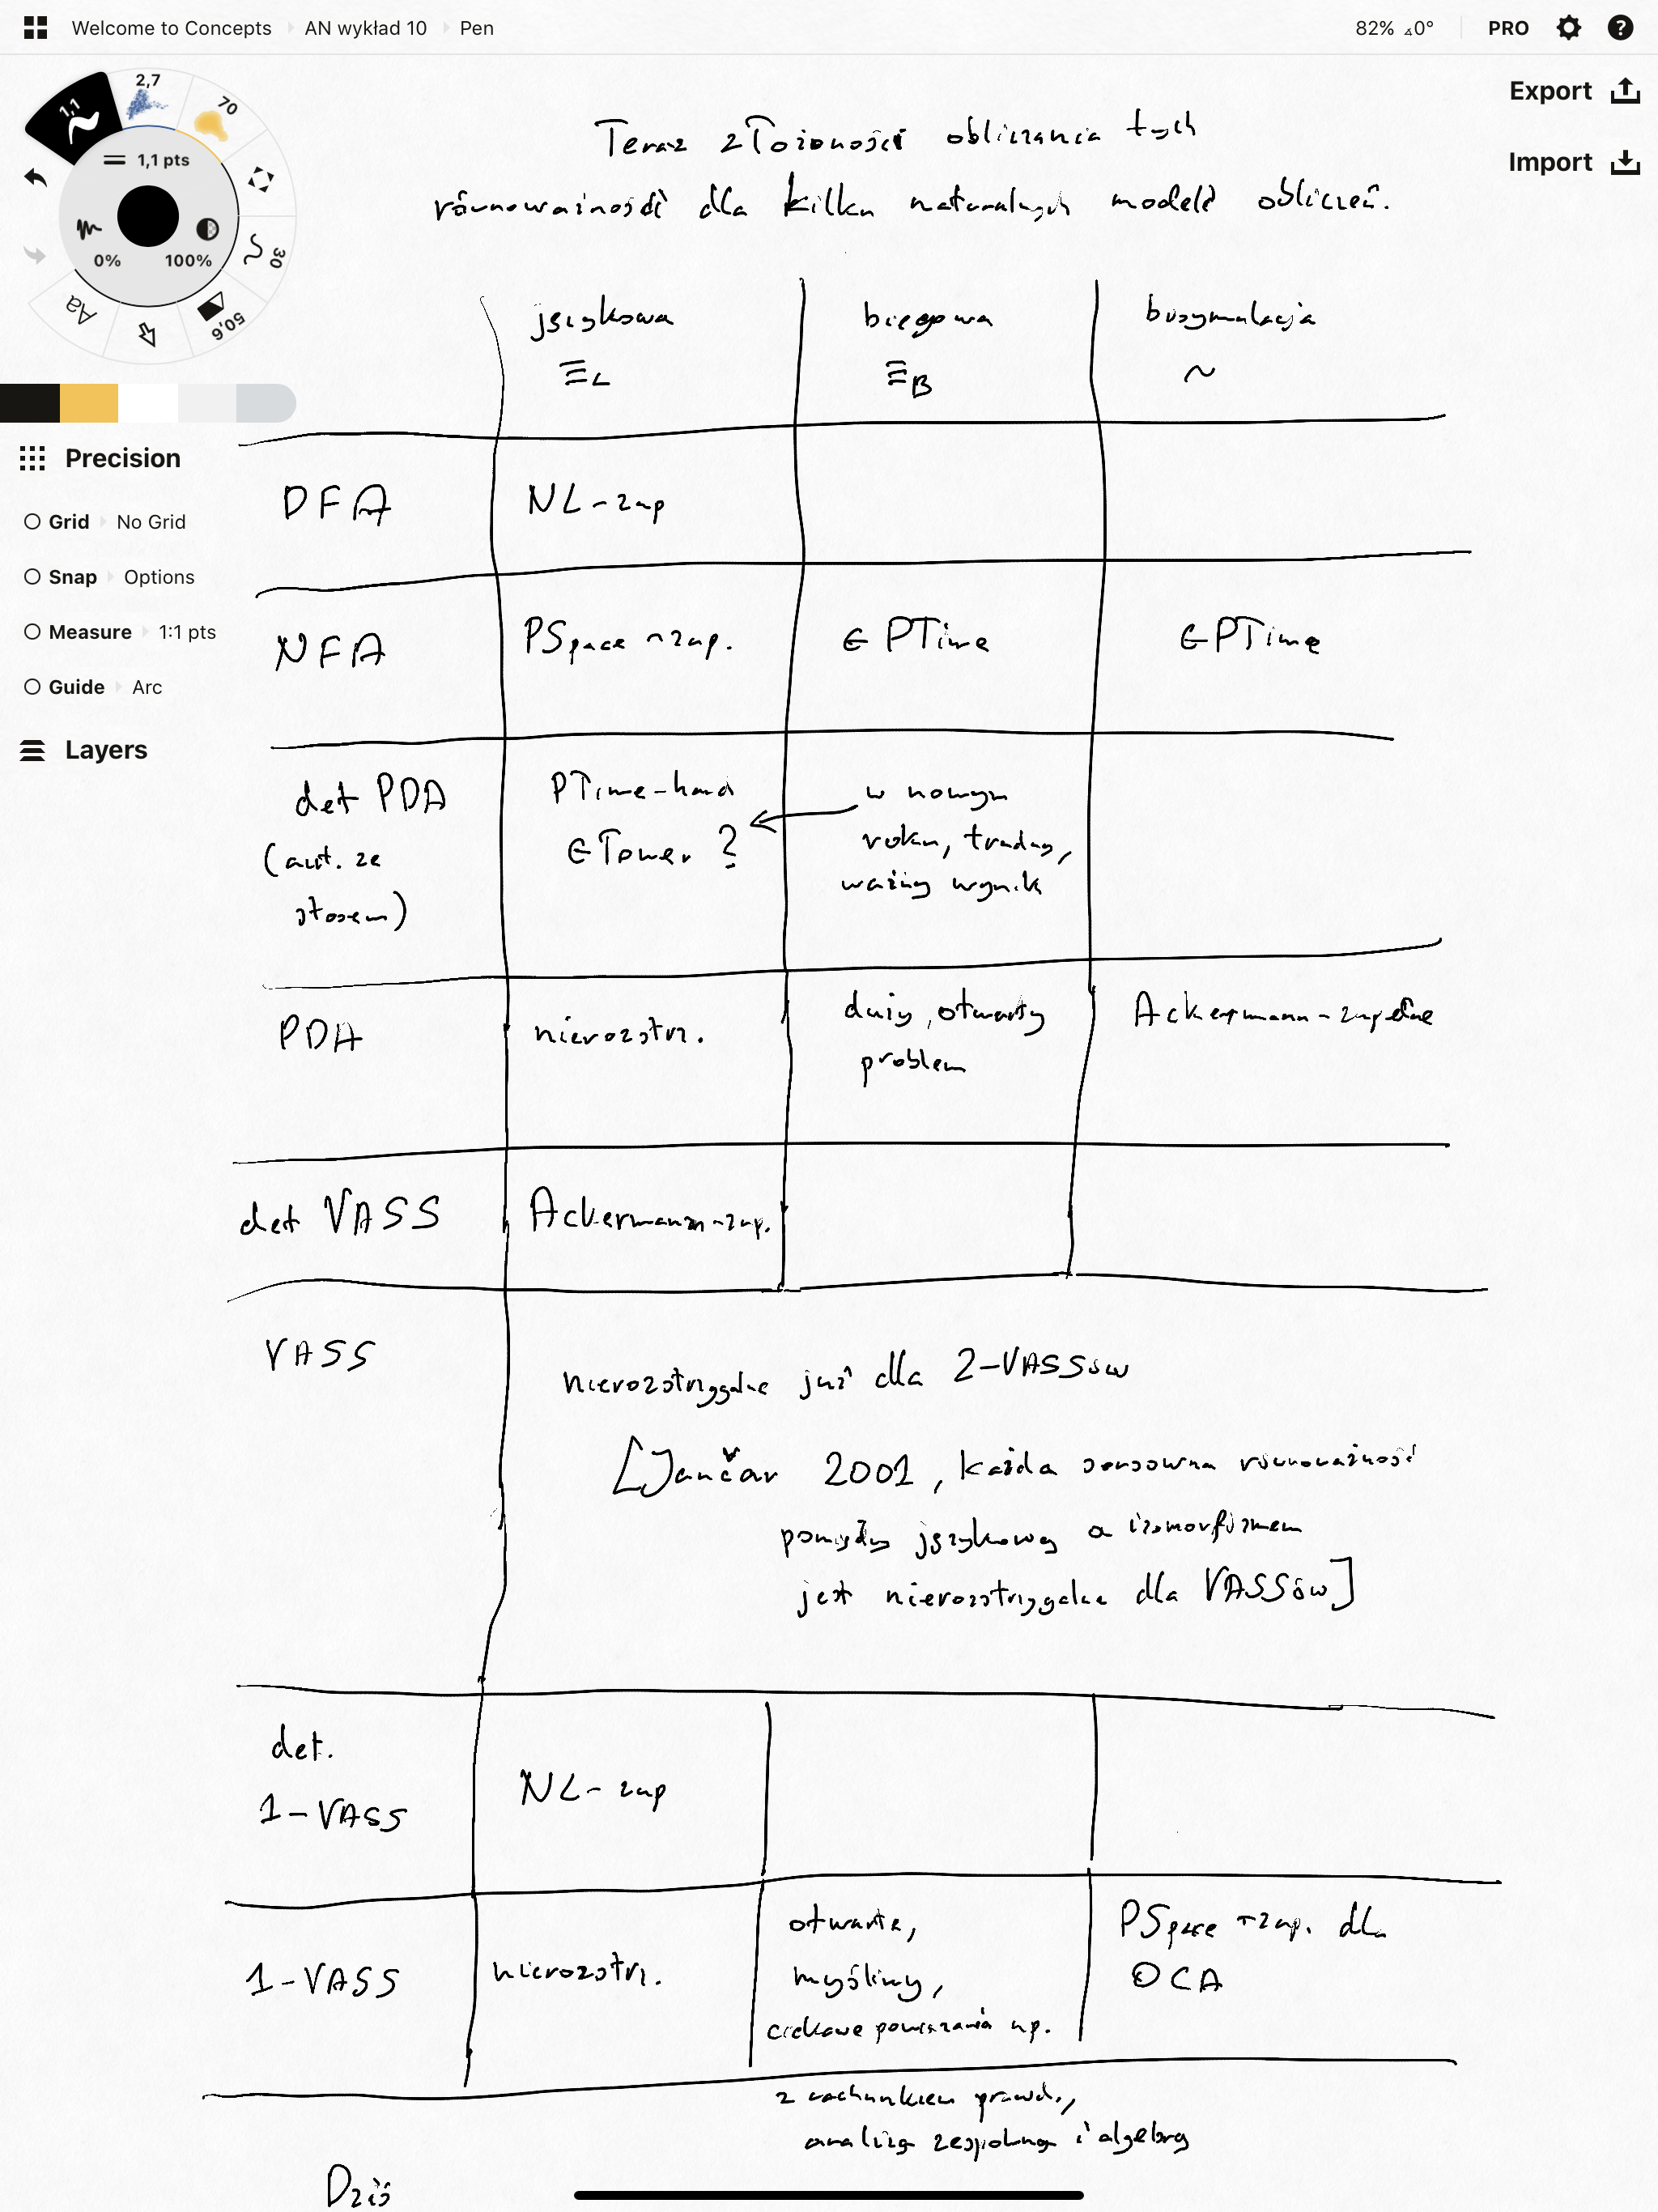 Welcome to Concepts AN wykład 10 Pen 82% ⊿0° PRO
Export
Import
1,1 2,7 70
1,1 pts
0% 100%
30
50,6
Aa
Precision
Grid No Grid
Snap Options
Measure 1:1 pts
Guide Arc
Layers
Teraz złożoności obliczania tych
równoważności dla kilku naturalnych modeli obliczeń.
językowa biegowa bisymulacja
≡L ≡B ~
DFA NL-zup
NFA PSpace-zup. ∈ PTime ∈ PTime
det PDA PTime-hard w nowym
(aut. ze ∈ Tower ? roku, trudny,
stosem) ważny wynik
PDA nierozstrz. duży, otwarty Ackermann-zupełne
problem
det VASS Ackermann-zup.
VASS
nierozstrzygalne już dla 2-VASSów
[Jančar 2001, każda sensowna równoważność
pomiędzy językową a izomorfizmem
jest nierozstrzygalna dla VASSów]
det.
1-VASS NL-zup
1-VASS nierozstrz. otwarte, PSpace-zup. dla
myśliny, OCA
ciekawe powiązania np.
z rachunkiem prawd.,
analizą zespoloną i algebrą
Dziś